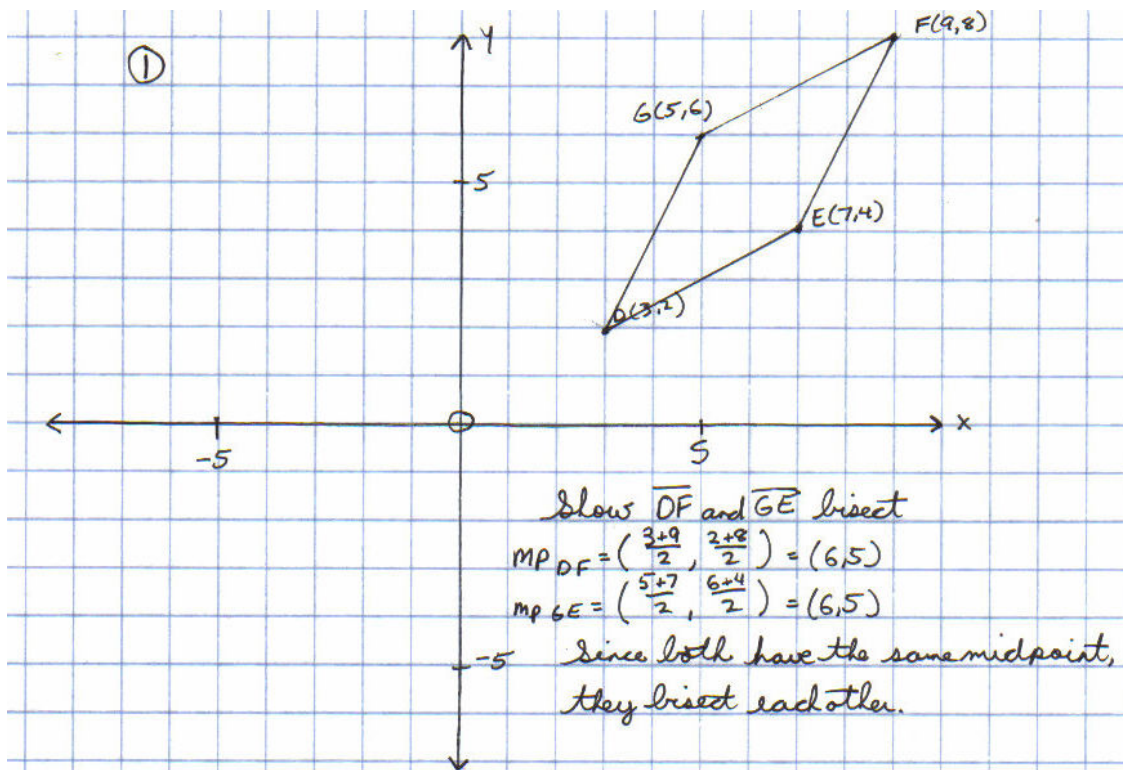 ①
y
F(9,8)
G(5,6)
5
E(7,4)
D(3,2)
x
-5
5
Show DF and GE bisect
MP DF = (3+9/2, 2+8/2) = (6,5)
MP GE = (5+7/2, 6+4/2) = (6,5)
-5
Since both have the same midpoint,
they bisect each other.